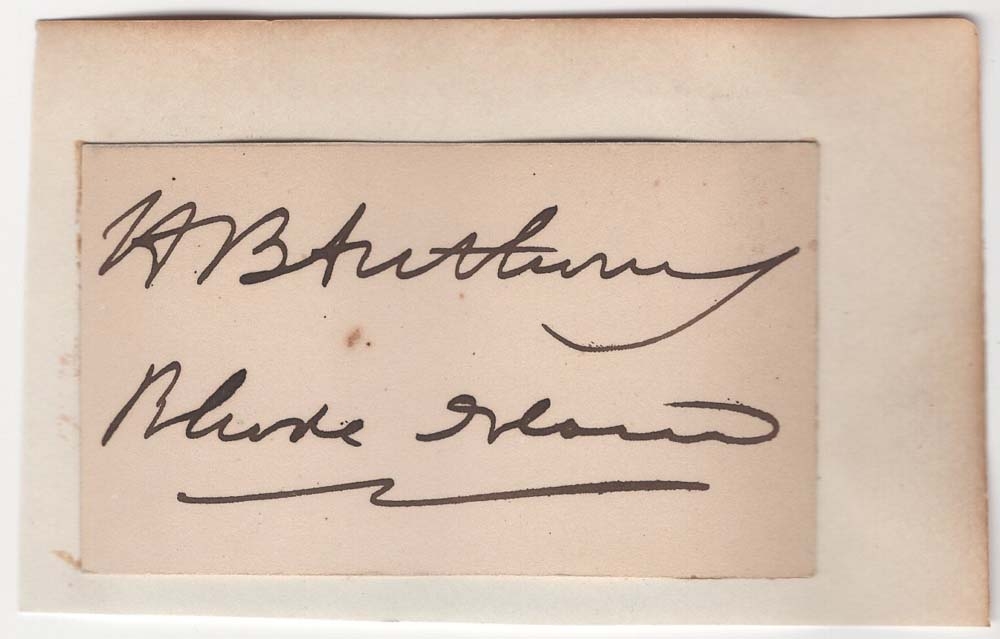 H B Anthony
Rhode Island